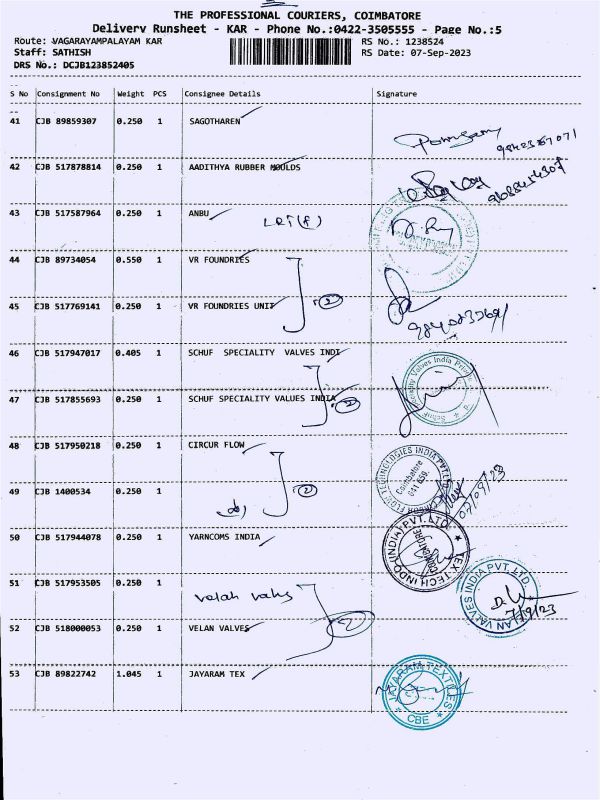 THE PROFESSIONAL COURIERS, COIMBATORE
Delivery Runsheet - KAR - Phone No.:0422-3505555 - Page No.:5
Route: VAGARAYAMPALAYAM KAR RS No.: 1238524
Staff: SATHISH RS Date: 07-Sep-2023
DRS No.: DCJB123852405
S No Consignment No Weight PCS Consignee Details Signature
41 CJB 89859307 0.250 1 SAGOTHAREN
42 CJB 517878814 0.250 1 AADITHYA RUBBER MOULDS
43 CJB 517587964 0.250 1 ANBU
44 CJB 89734054 0.550 1 VR FOUNDRIES
2
45 CJB 517769141 0.250 1 VR FOUNDRIES UNIT
46 CJB 517947017 0.405 1 SCHUF SPECIALITY VALVES INDI
47 CJB 517855693 0.250 1 SCHUF SPECIALITY VALUES INDIA
2
48 CJB 517950218 0.250 1 CIRCUR FLOW
Coimbatore
641 659.
49 CJB 1400534 0.250 1
2
07/09/23
50 CJB 517944078 0.250 1 YARNCOMS INDIA
TEX TECH INDO INDIA PVT. LTD.
COIMBATORE
51 CJB 517953505 0.250 1
velan valves
VELAN VALVES INDIA PVT. LTD.
7/9/23
52 CJB 518000053 0.250 1 VELAN VALVES
2
53 CJB 89822742 1.045 1 JAYARAM TEX
JAYARAM TEXTILES
CBE